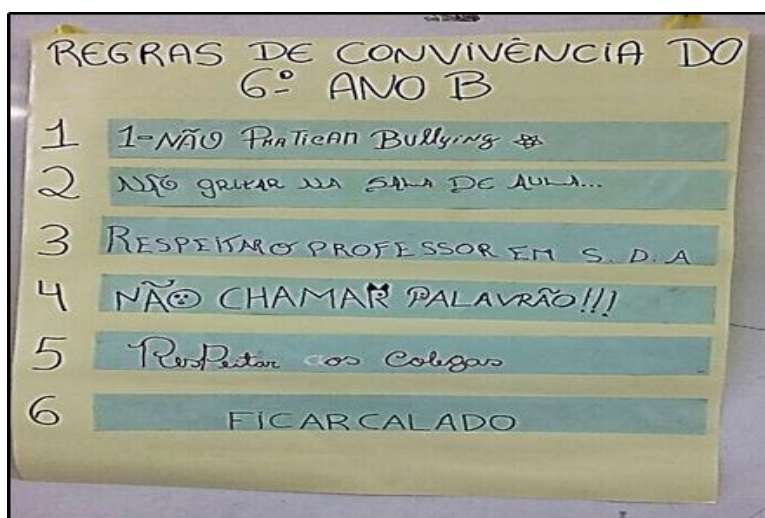 REGRAS DE CONVIVÊNCIA DO
6º ANO B
1 1-NÃO PRATICAR Bullying
2 NÃO GRITAR NA SALA DE AULA...
3 RESPEITAR O PROFESSOR EM S. D. A
4 NÃO CHAMAR PALAVRÃO!!!
5 Respeitar aos Colegas
6 FICAR CALADO